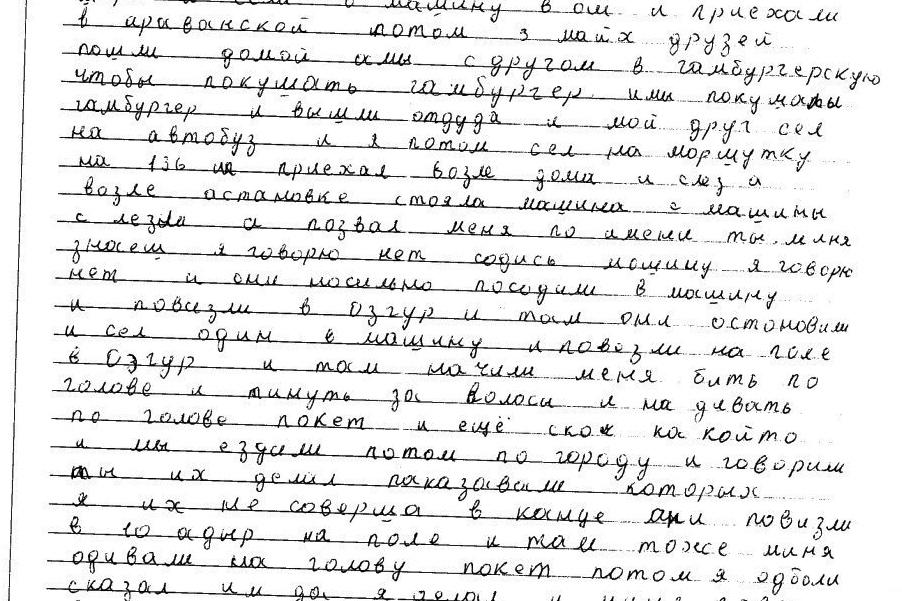 машину в ом и приехали
в араванской потом 3 майх друзей
пошли домой амы с другом в гамбургерскую
чтобы покумать гамбургер или покуматы
гамбургер и вышли отдуда и мой друг сел
на автобуз и я потом сел на моршутку
на 136 и приехал возле дома и слез а
возле астановке стояла машина с машины
с лезли а позвал меня по имени ты миня
знаеш я говорю нет содись мошину я говорю
нет и они носильно посодили в машину
и повизли в Озгур и там они остоновили
и сел один в машину и повозли на поле
в Озгур и там начили меня бить по
голове и тинуть за волоси и на дивать
по голове покет и ещё скож ка който
и мы ездили потом по городу и говорили
ты их делил паказавали которых
я их не соверша в канце ани повизли
в 10 адыр на поле и там тоже миня
одивали на голову покет потом я
сказал им да я делал и